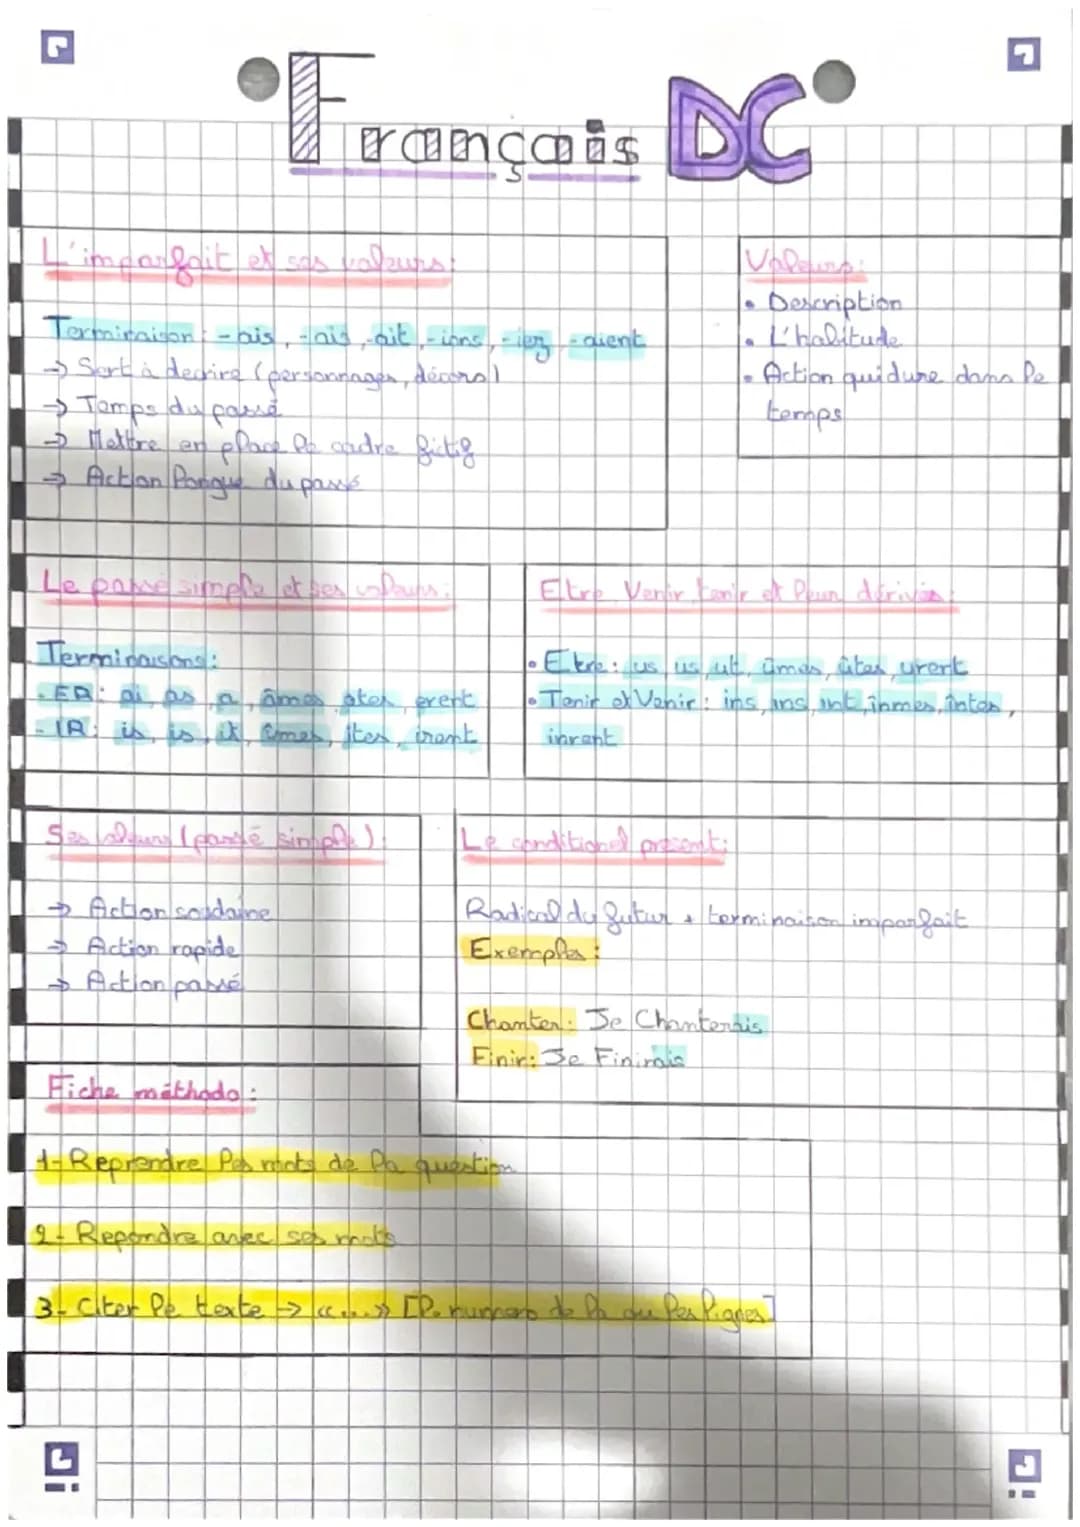 Français DC
L'imparfait et ses valeurs:
Terminaison : -ais, -ais, -ait, -ions, -iez, -aient
→ Sert à decrire (personnages, décors)
→ Temps du passé
→ Mettre en place le cadre fictif
→ Action longue du passé
Valeurs:
• Description
• L'habitude
• Action qui dure dans le
temps
Le passé simple et ses valeurs:
Terminaisons:
- ER: ai, as, a, âmes, ates, erent
- IR: is, is, it, îmes, ites, irent
Etre Venir tenir et leur dérivés:
• Etre: us, us, ut, ûmes, ûtes, urent
• Tenir et Venir: ins, ins, int, înmes, întes,
inrent
Ses valeurs (passé simple):
→ Action soudaine
→ Action rapide
→ Action passé
Le conditionel présent:
Radical du futur + terminaison imparfait
Exemples:
Chanter: Je Chanterais
Finir: Je Finirais
Fiche méthode:
1- Reprendre les mots de la question
2- Repondre avec ses mots
3- Citer le texte → «...» [l. numero de la ou les lignes]